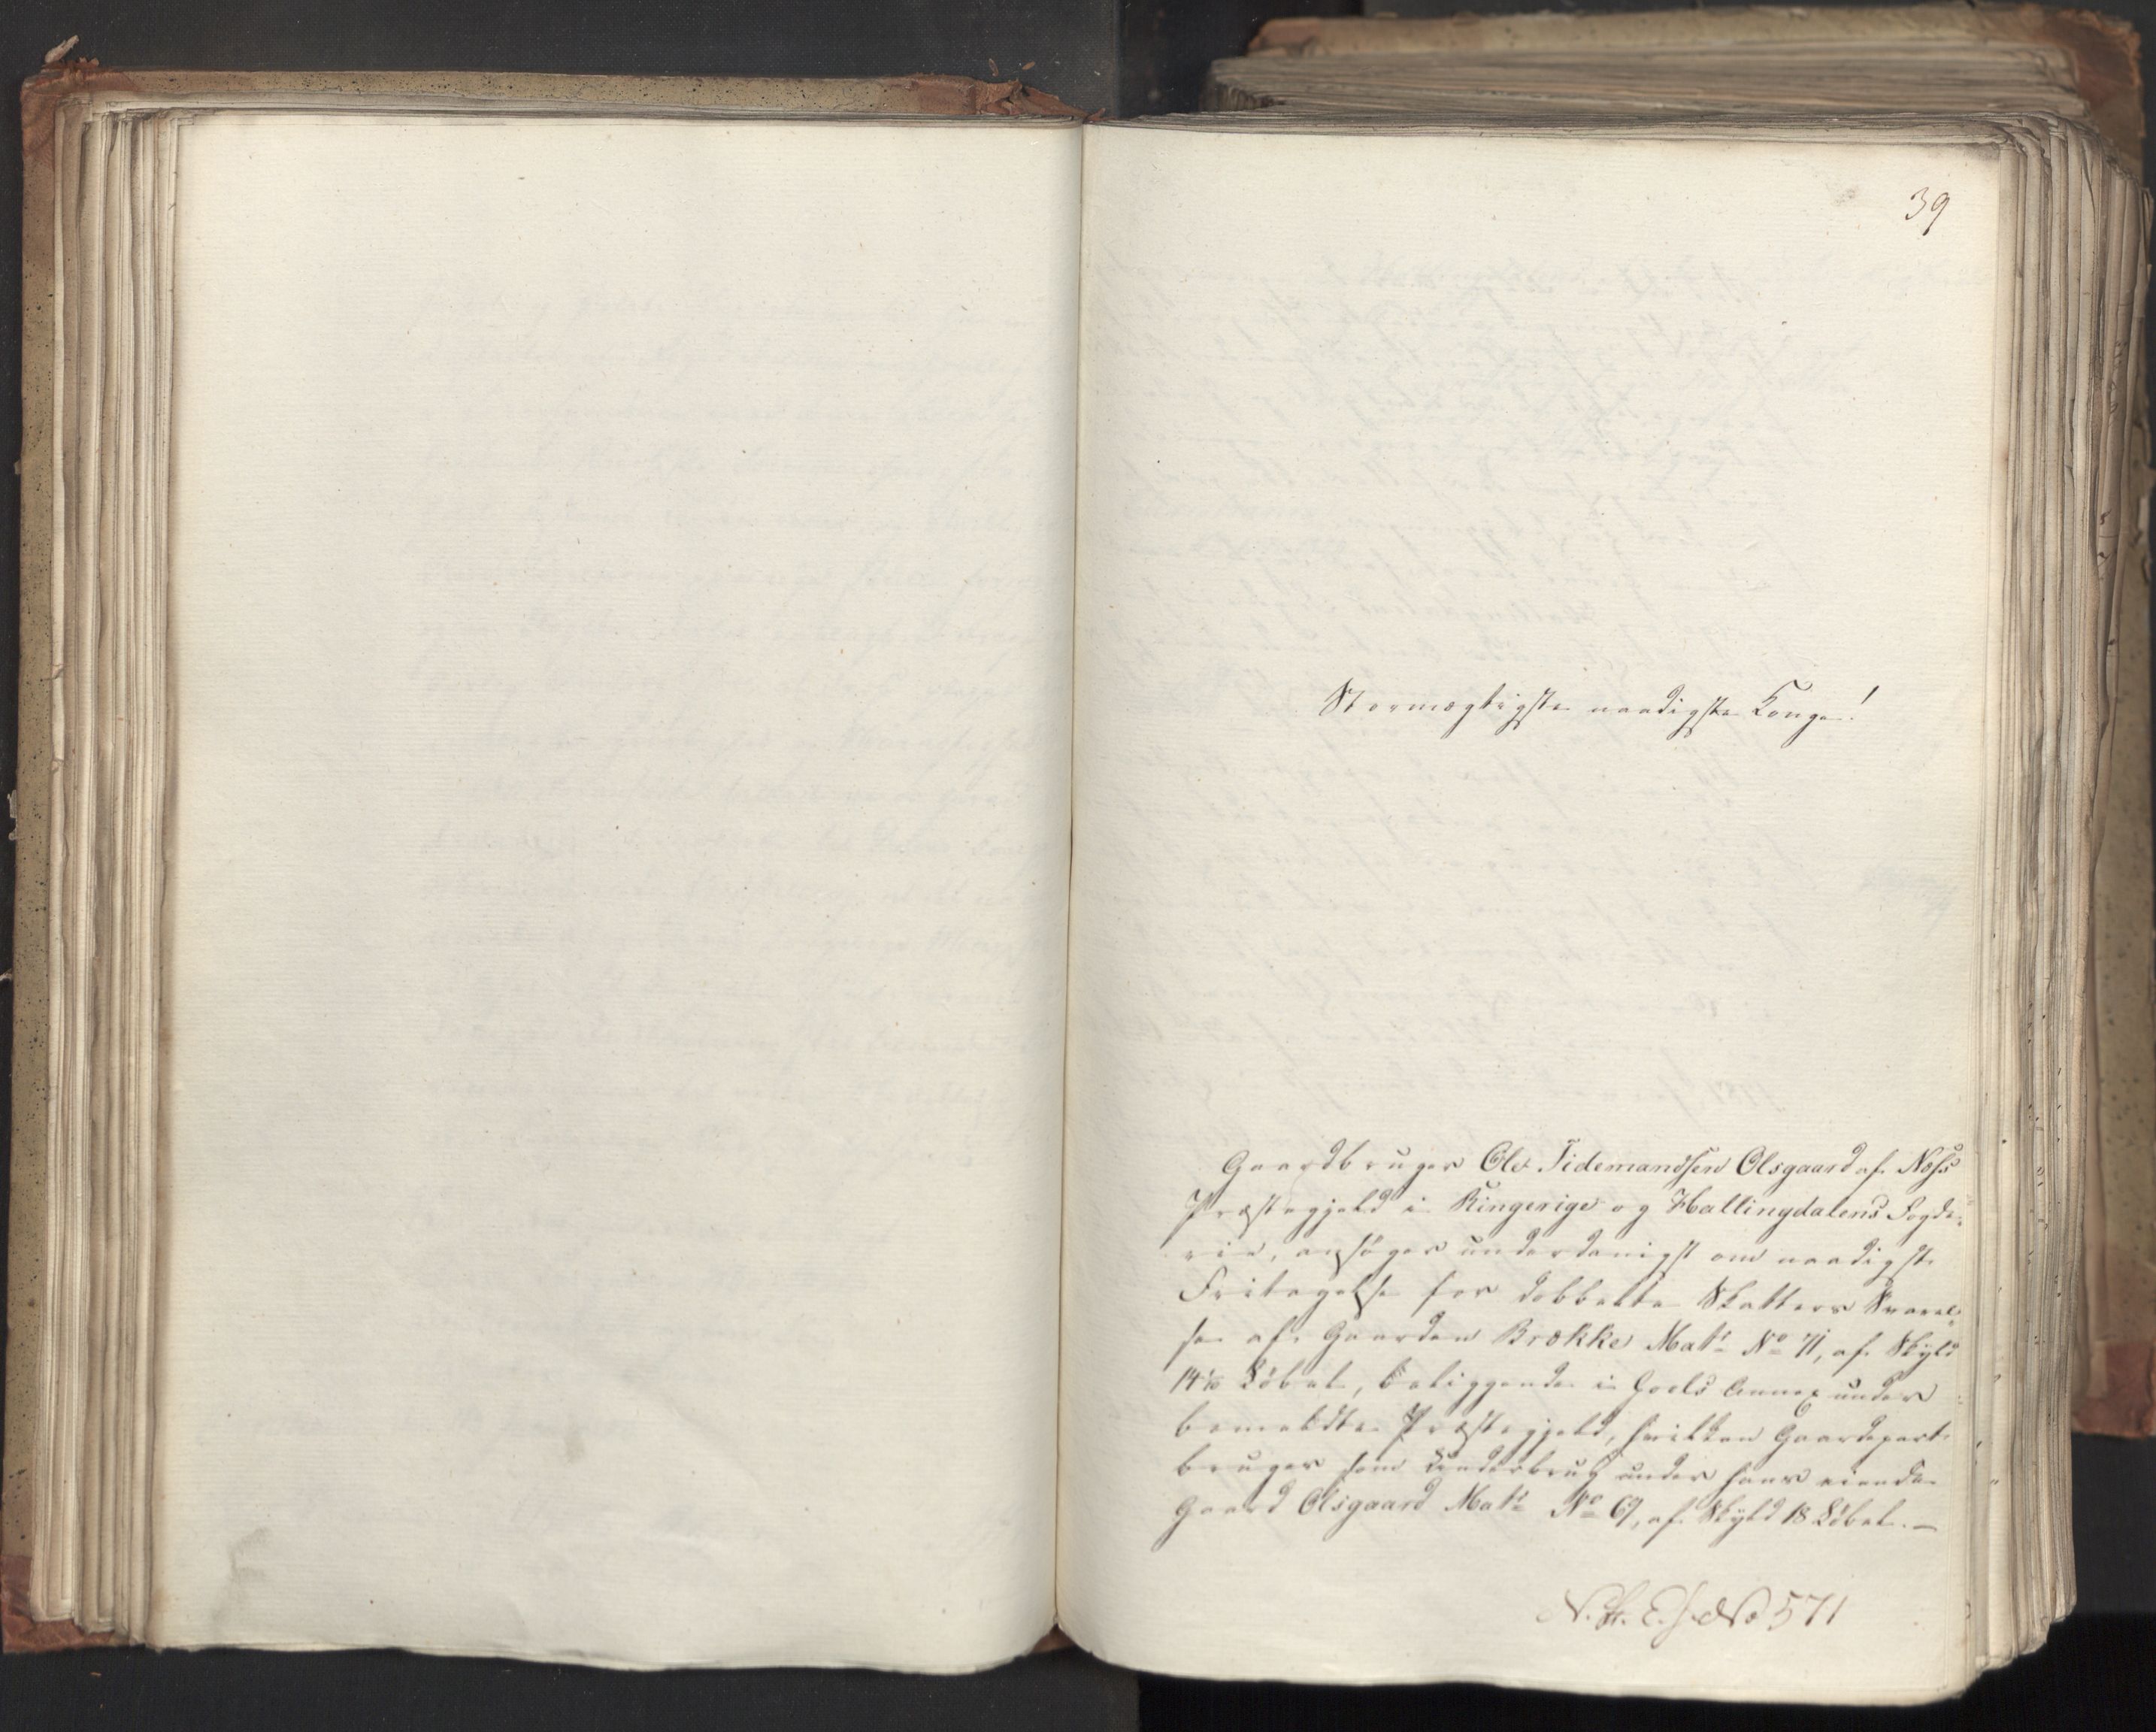 39
Stormægtigste naadigste Konge!
Gaardbruger Ole Tidemandsen Olsgaard af Næss
Præstegjeld i Ringerige og Hallingdalens Fogde-
rie, ansøger underdanigst om naadigst
Fritagelse for dobbelte Skatters Svarel-
se af Gaarden Brække Matr No 71, af Skyld
14 1/10 Løbel, beliggende i Goels Annex under
bemeldte Præstegjeld, hvilken Gaardepart
bruges som Underbrug under hans eiende
Gaard Olsgaard Matr No 69, af Skyld 18 Løbel. —
No 571